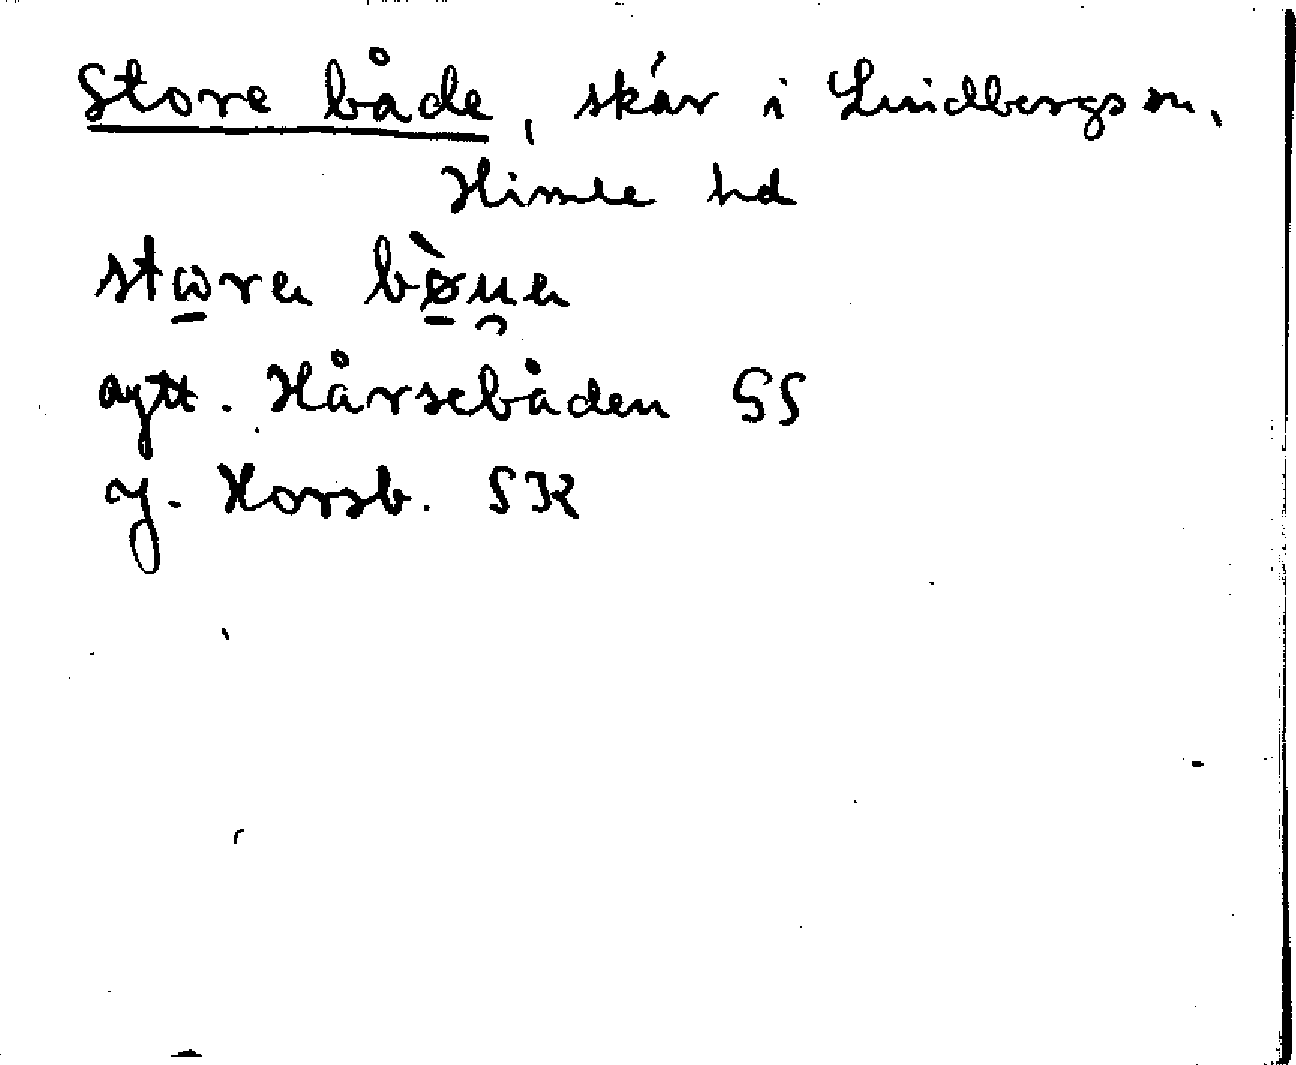 Store både, skär i Lindbergs sn,
Himle hd
stɷra bøua
aytt. Hårsebåden GS
J. Horsb. SK